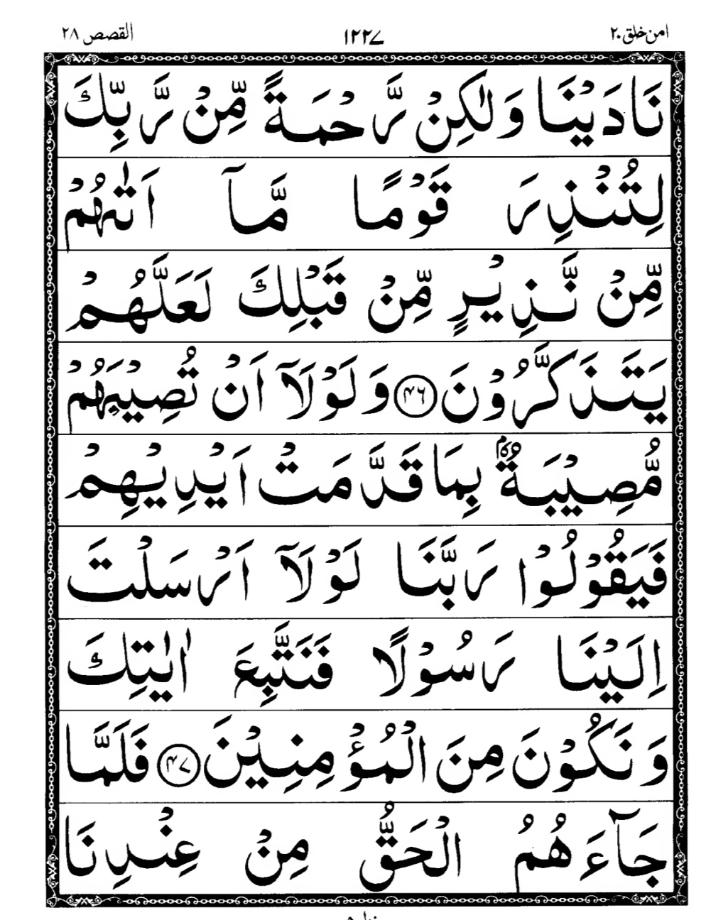 امن خلق ۲۰ ۱۲۲۷ القصص ۲۸
نَادَيْنَا وَلٰكِنْ رَّحْمَةً مِّنْ رَّبِّكَ
لِتُنْذِرَ قَوْمًا مَّآ اَتٰىهُمْ
مِّنْ نَّذِيْرٍ مِّنْ قَبْلِكَ لَعَلَّهُمْ
يَتَذَكَّرُوْنَ ﴿۴۶﴾ وَلَوْلَآ اَنْ تُصِيْبَهُمْ
مُّصِيْبَةٌۢ بِمَا قَدَّمَتْ اَيْدِيْهِمْ
فَيَقُوْلُوْا رَبَّنَا لَوْلَآ اَرْسَلْتَ
اِلَيْنَا رَسُوْلًا فَنَتَّبِعَ اٰيٰتِكَ
وَنَكُوْنَ مِنَ الْمُؤْمِنِيْنَ ﴿۴۷﴾ فَلَمَّا
جَآءَهُمُ الْحَقُّ مِنْ عِنْدِنَا